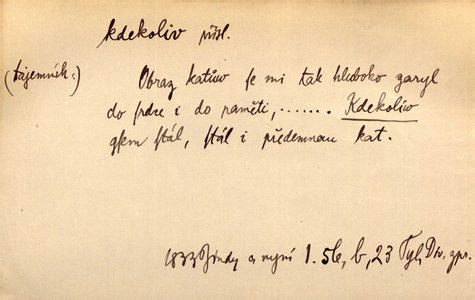 kdekoliv přísl.
(tajemník:)
Obraz katůw se mi tak hluboko zaryl
do srdce i do paměti,....... Kdekoliw
gsem stál, stál i předemnau kat.
1833 Jindy a nyní 1. 56, b, 23 Tyl, Div. zpr.